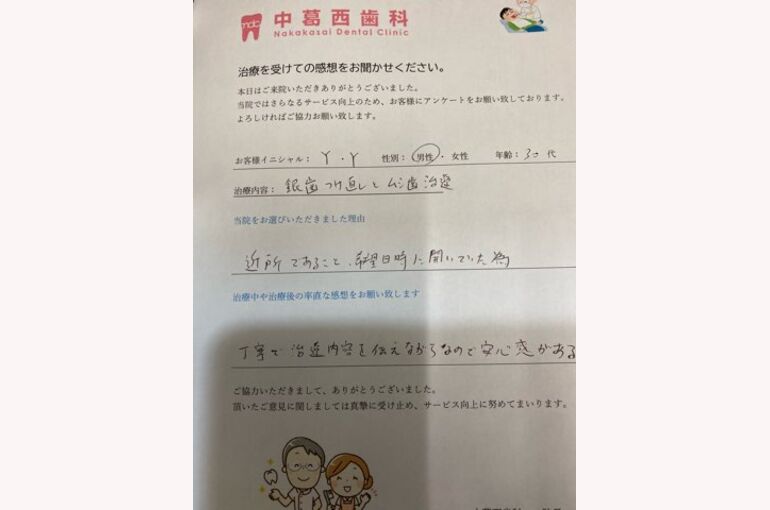 ndc 中葛西歯科
Nakakasai Dental Clinic
治療を受けての感想をお聞かせください。
本日はご来院いただきありがとうございました。
当院ではさらなるサービス向上のため、お客様にアンケートをお願い致しております。
よろしければご協力お願い致します。
お客様イニシャル： Y・Y 性別：男性・女性 年齢：30代
治療内容： 銀歯つけ直しとムシ歯治療
当院をお選びいただきました理由
近所であること、希望日時に開いていた為
治療中や治療後の率直な感想をお願い致します
丁寧で治療内容を伝えながらなので安心感がある
ご協力いただきまして、ありがとうございました。
頂いたご意見に関しましては真摯に受け止め、サービス向上に努めてまいります。